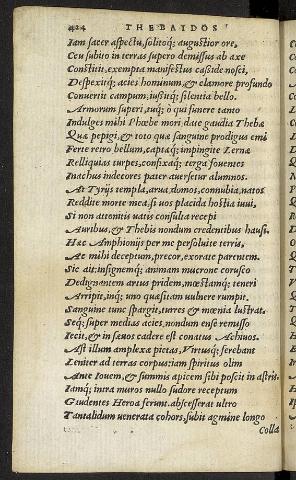 424 THEBAIDOS
Iam sacer aspectu, solitoq; augustior ore,
Ceu subito in terras supero demissus ab axe
Constitit, exempta manifestus casside nosci,
Despexitq; acies hominum, & clamore profundo
Convertit campum, iussitq; silentia bello.
Armorum superi, tuq; ô qui funere tanto
Indulges mihi Phœbe mori, date gaudia Thebæ
Quæ pepigi, & toto quæ sanguine prodigus emi
Ferte retro bellum, captæq; impingite Lernæ
Relliquias turpes, confixaq; terga fouentes
Inachus indecores pater auersetur alumnos.
At Tyrijs templa, arua, domos, connubia, natos
Reddite morte mea. si uos placida hostia iuui,
Si non attonitis uatis consulta recepi
Auribus, & Thebis nondum credentibus hausi.
Hæc Amphionijs per me persoluite terris,
Ac mihi deceptum, precor, exorate parentem.
Sic ait: insignemq; animam mucrone corusco
Dedignantem artus pridem, mœstamq; teneri
Arripit, inq; uno quæsitam uulnere rumpit.
Sanguine tunc spargit, turres & mœnia lustrat.
Seq; super medias acies, nondum ense remisso
Iecit, & in sæuos cadere est conatus Achiuos.
Ast illum amplexæ pietas, Virtusq; ferebant
Leniter ad terras corpus: iam spiritus olim
Ante Iouem, & summis apicem sibi poscit in astris.
Iamq; intra muros nullo sudore receptum
Gaudentes Heroa ferunt. abscesserat ultro
Tantalidum uenerata cohors, subit agmine longo
Colla